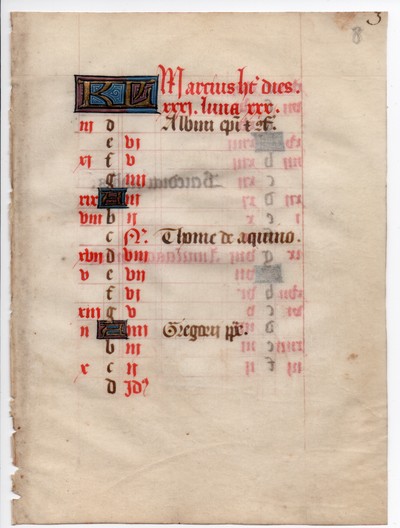 3
8
KL Marcius ht dies.
xxxi. luna xxx.
iij d Albini epi z cf.
e vi
xi f v
g iiij
xix A iij
viij b ij
c N. Thome de aquino.
xvij d viij
v e vij
f vi
xiij g v
ij A iiij Gregorii pp.
b iij
x c ij
d Jd9